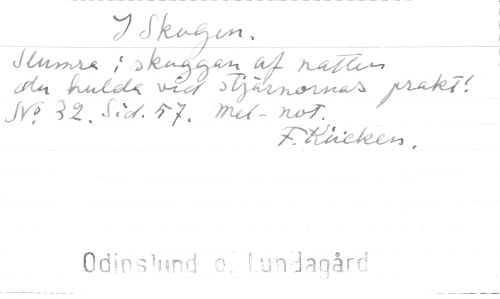 I Skogen.
Slumra i skuggan af natten
du hulda vid stjärnornas prakt!
No. 32. Sid. 57. Mel-not.
F. Kücken.
Odinslund o. Lundagård